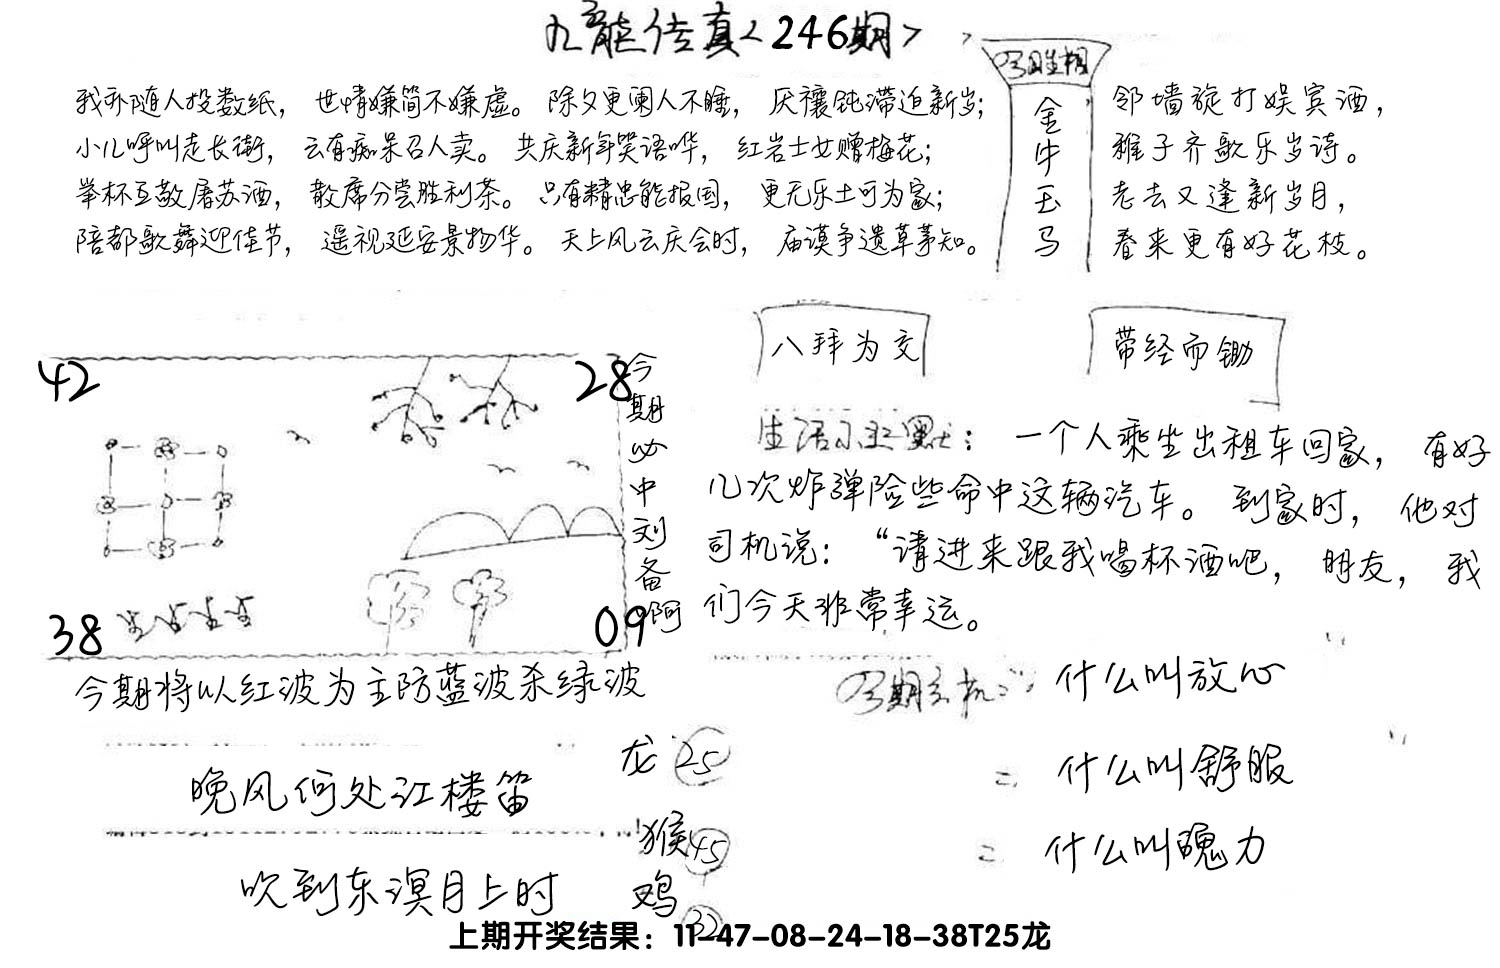 九龙传真<246期>
我亦随人投数纸，世情嫌简不嫌虚。除夕更阑人不睡，厌禳钝滞迫新岁；
小儿呼叫走长街，云有痴呆召人卖。共庆新年笑语哗，红岩士女赠梅花；
举杯互敬屠苏酒，散席分尝胜利茶。只有精忠能报国，更无乐土可为家；
陪都歌舞迎佳节，遥祝延安景物华。天上风云庆会时，庙谟争遗草茅知。
今期生相
金牛玉马
邻墙旋打娱宾酒，
稚子齐歌乐岁诗。
老去又逢新岁月，
春来更有好花枝。
42
28
38
09
今期必中刘备阿
今期将以红波为主防蓝波杀绿波
晚风何处江楼笛
吹到东溟月上时
龙 25
猴 45
鸡 32
八拜为交
带经而锄
生活小幽默：一个人乘坐出租车回家，有好
几次炸弹险些命中这辆汽车。到家时，他对
司机说：“请进来跟我喝杯酒吧，朋友，我
们今天非常幸运。
今期玄机： 什么叫放心
= 什么叫舒服
= 什么叫魄力
上期开奖结果：11-47-08-24-18-38T25龙